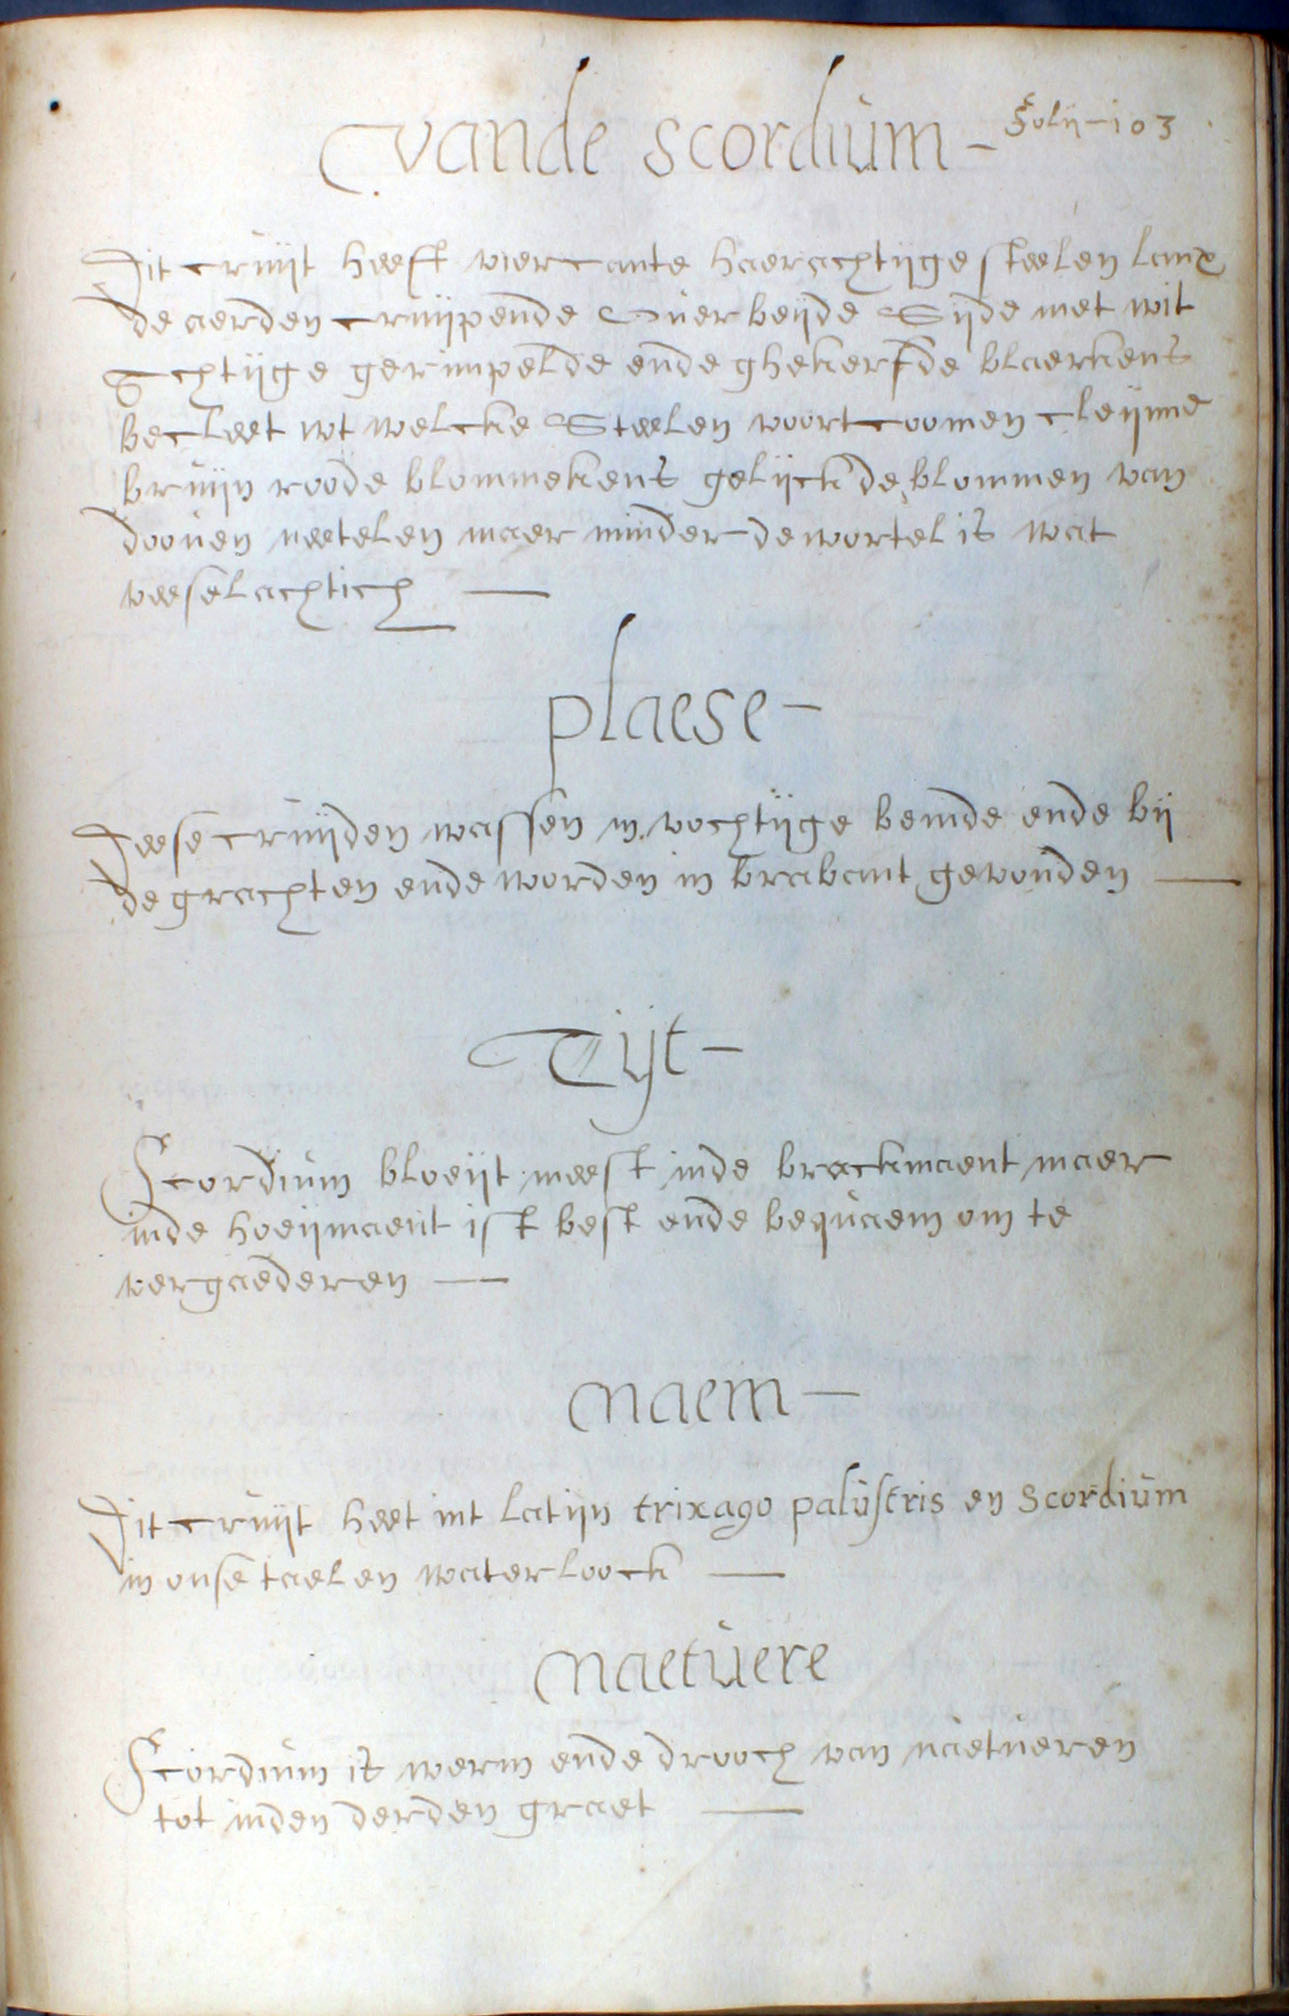 vande scordium -
folii - 103
Dit cruijt heeft viercante haerachtijge steelen lanx
de aerden cruijpende Over beijde Sijde met wit
Achtijge gerimpelde ende ghekerfde blaerkens
becleet wt welcke Steelen voort coomen cleijnne
bruijn roode blommekens gelijck de blommen van
dooven neetelen maer minder de wortel is wat
veeselachtich —
plaese -
Deese cruijden wassen in vochtijge bemde ende bij
de grachten ende worden in brabant gevonden —
Tijt -
Scordium bloeijt meest inde brackmaent maer
inde hoeijmaent ist best ende bequaem om te
vergaederen —
naem -
Dit cruijt heet int latijn trixago palustris en scordium
in onse taelen waterloock —
naetuere
Scordium is werm ende drooch van naetueren
tot inden derden graet —